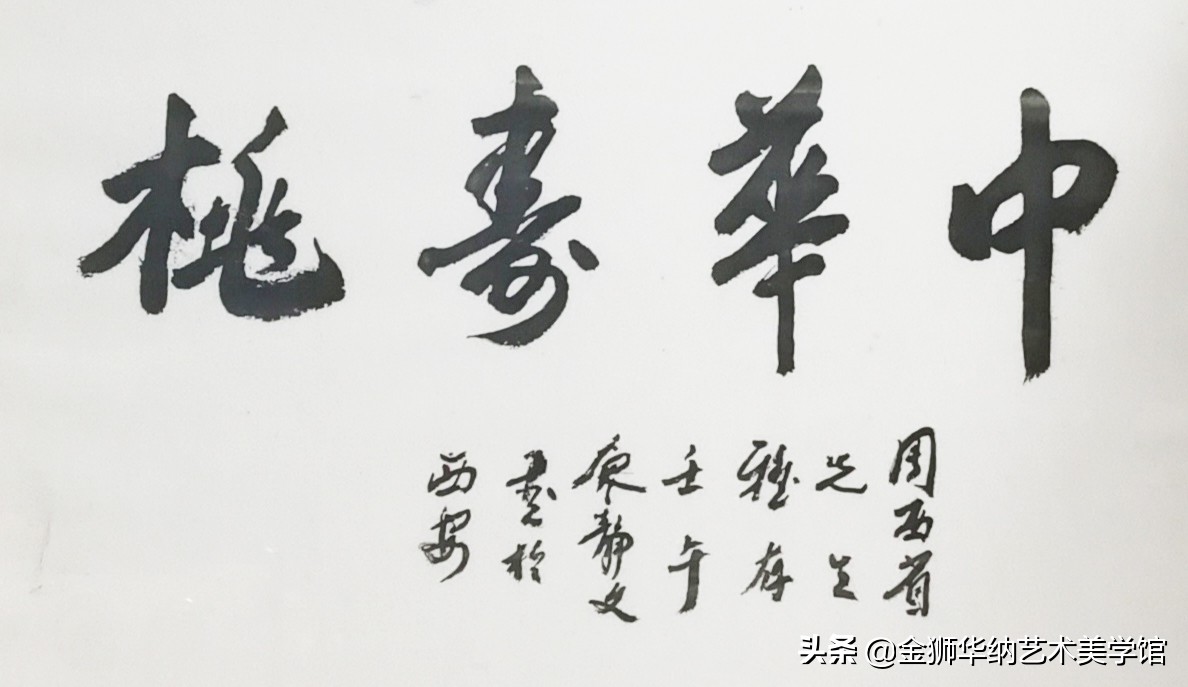 中華壽桃
周西省
先生
雅存
壬午
廖靜文
書於
西安
头条 @金狮华纳艺术美学馆